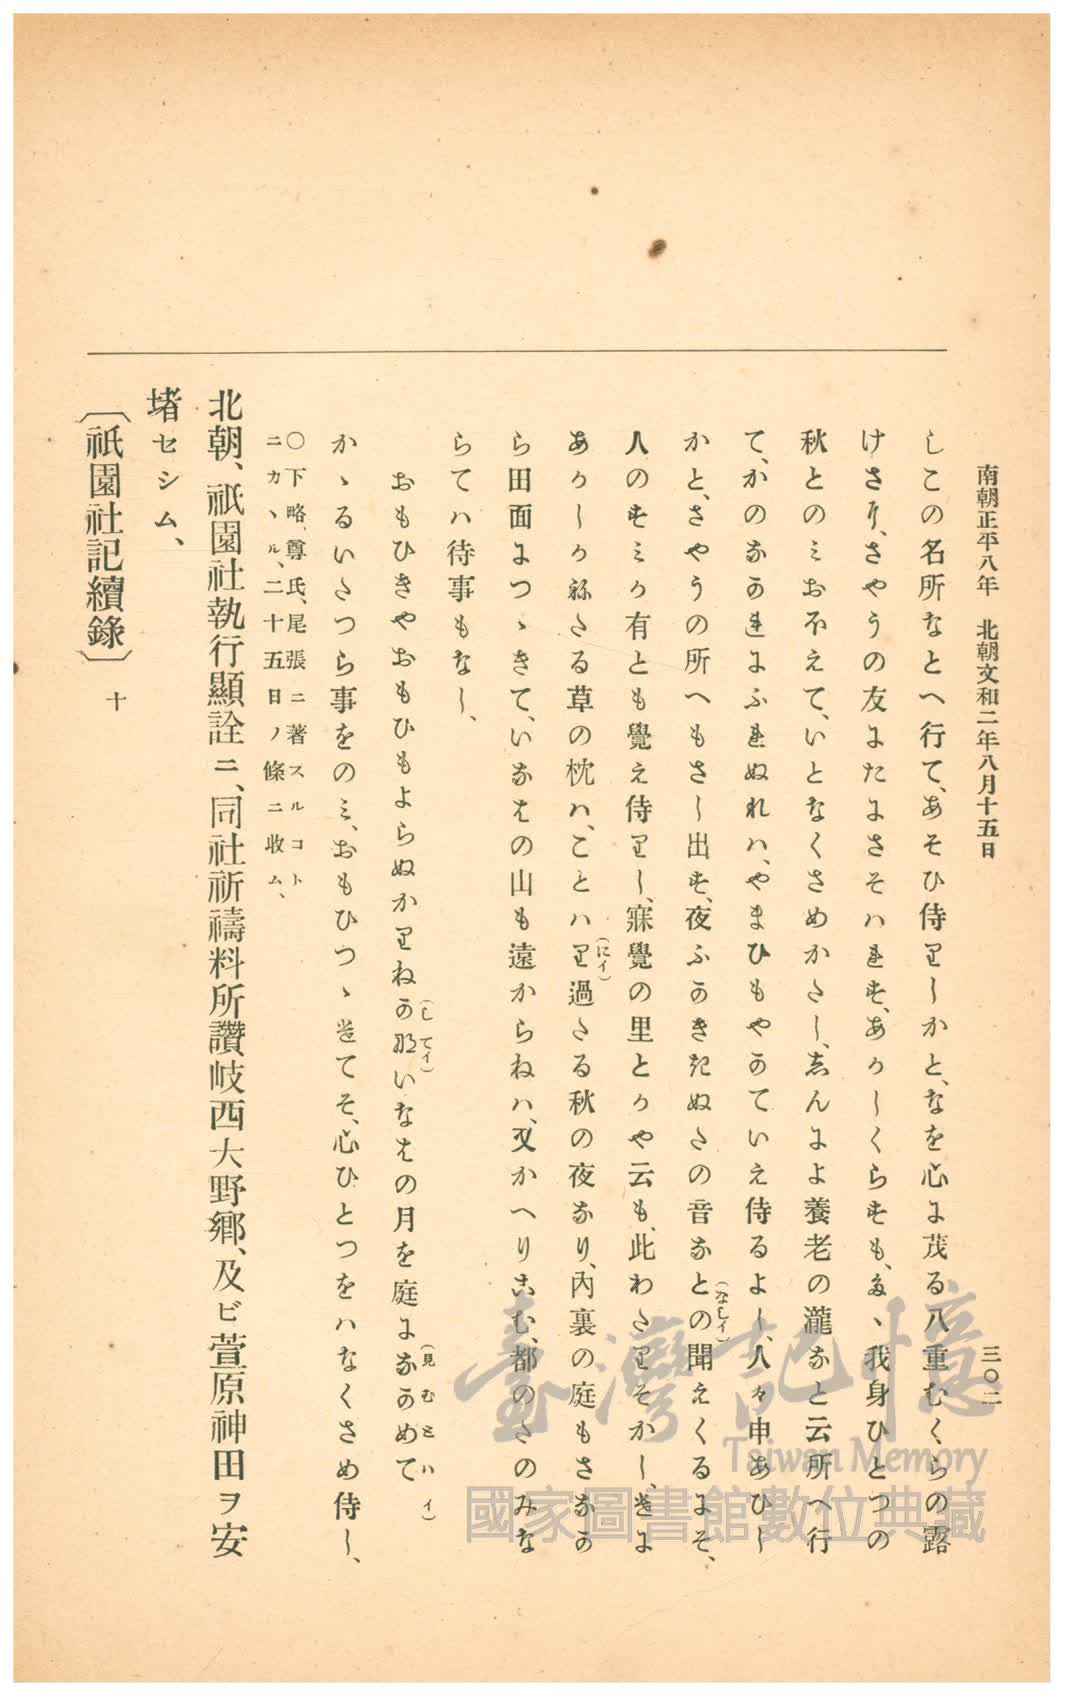 南朝正平八年　北朝文和二年八月十五日
三〇二
しこの名所なとへ行て、あそひ侍りしかと、なを心に茂る八重むくらの露
けさり、さやうの友にたにさそはれす、あかしくらすも、たゝ我身ひとつの
秋とのミおほえて、いとなくさめかたし、しんによ養老の瀧なと云所へ行
て、かのなかれにふれぬれハ、やまひもやかていえ侍るよし、人々申あひし
かと、さやうの所へもさし出す、夜ふかききぬたの音なとの聞えくるにそ、
（なしイ）
人のすミか有とも覺え侍りし、寐覺の里とかや云も、此わたりそかし、さに
あかしかねたる草の枕ハ、ことハり過たる秋の夜なり、内裏の庭もさなか
（にイ）
ら田面につゝきて、いなはの山も遠からねハ、又かへりこむ、都のたのみな
らてハ待事もなし、
おもひきやおもひもよらぬかりねかないなはの月を庭になかめて
（してイ）
（見むとハイ）
かゝるいたつら事をのミ、おもひつゝさてそ、心ひとつをハなくさめ侍し、
〇下略、尊氏、尾張ニ著スルコト
ニカヽル、二十五日ノ條ニ收ム、
北朝、祇園社執行顯詮ニ、同社祈禱料所讚岐西大野鄕、及ビ萱原神田ヲ安
堵セシム、
〔祇園社記續錄〕　十
臺灣記憶
Taiwan Memory
國家圖書館數位典藏